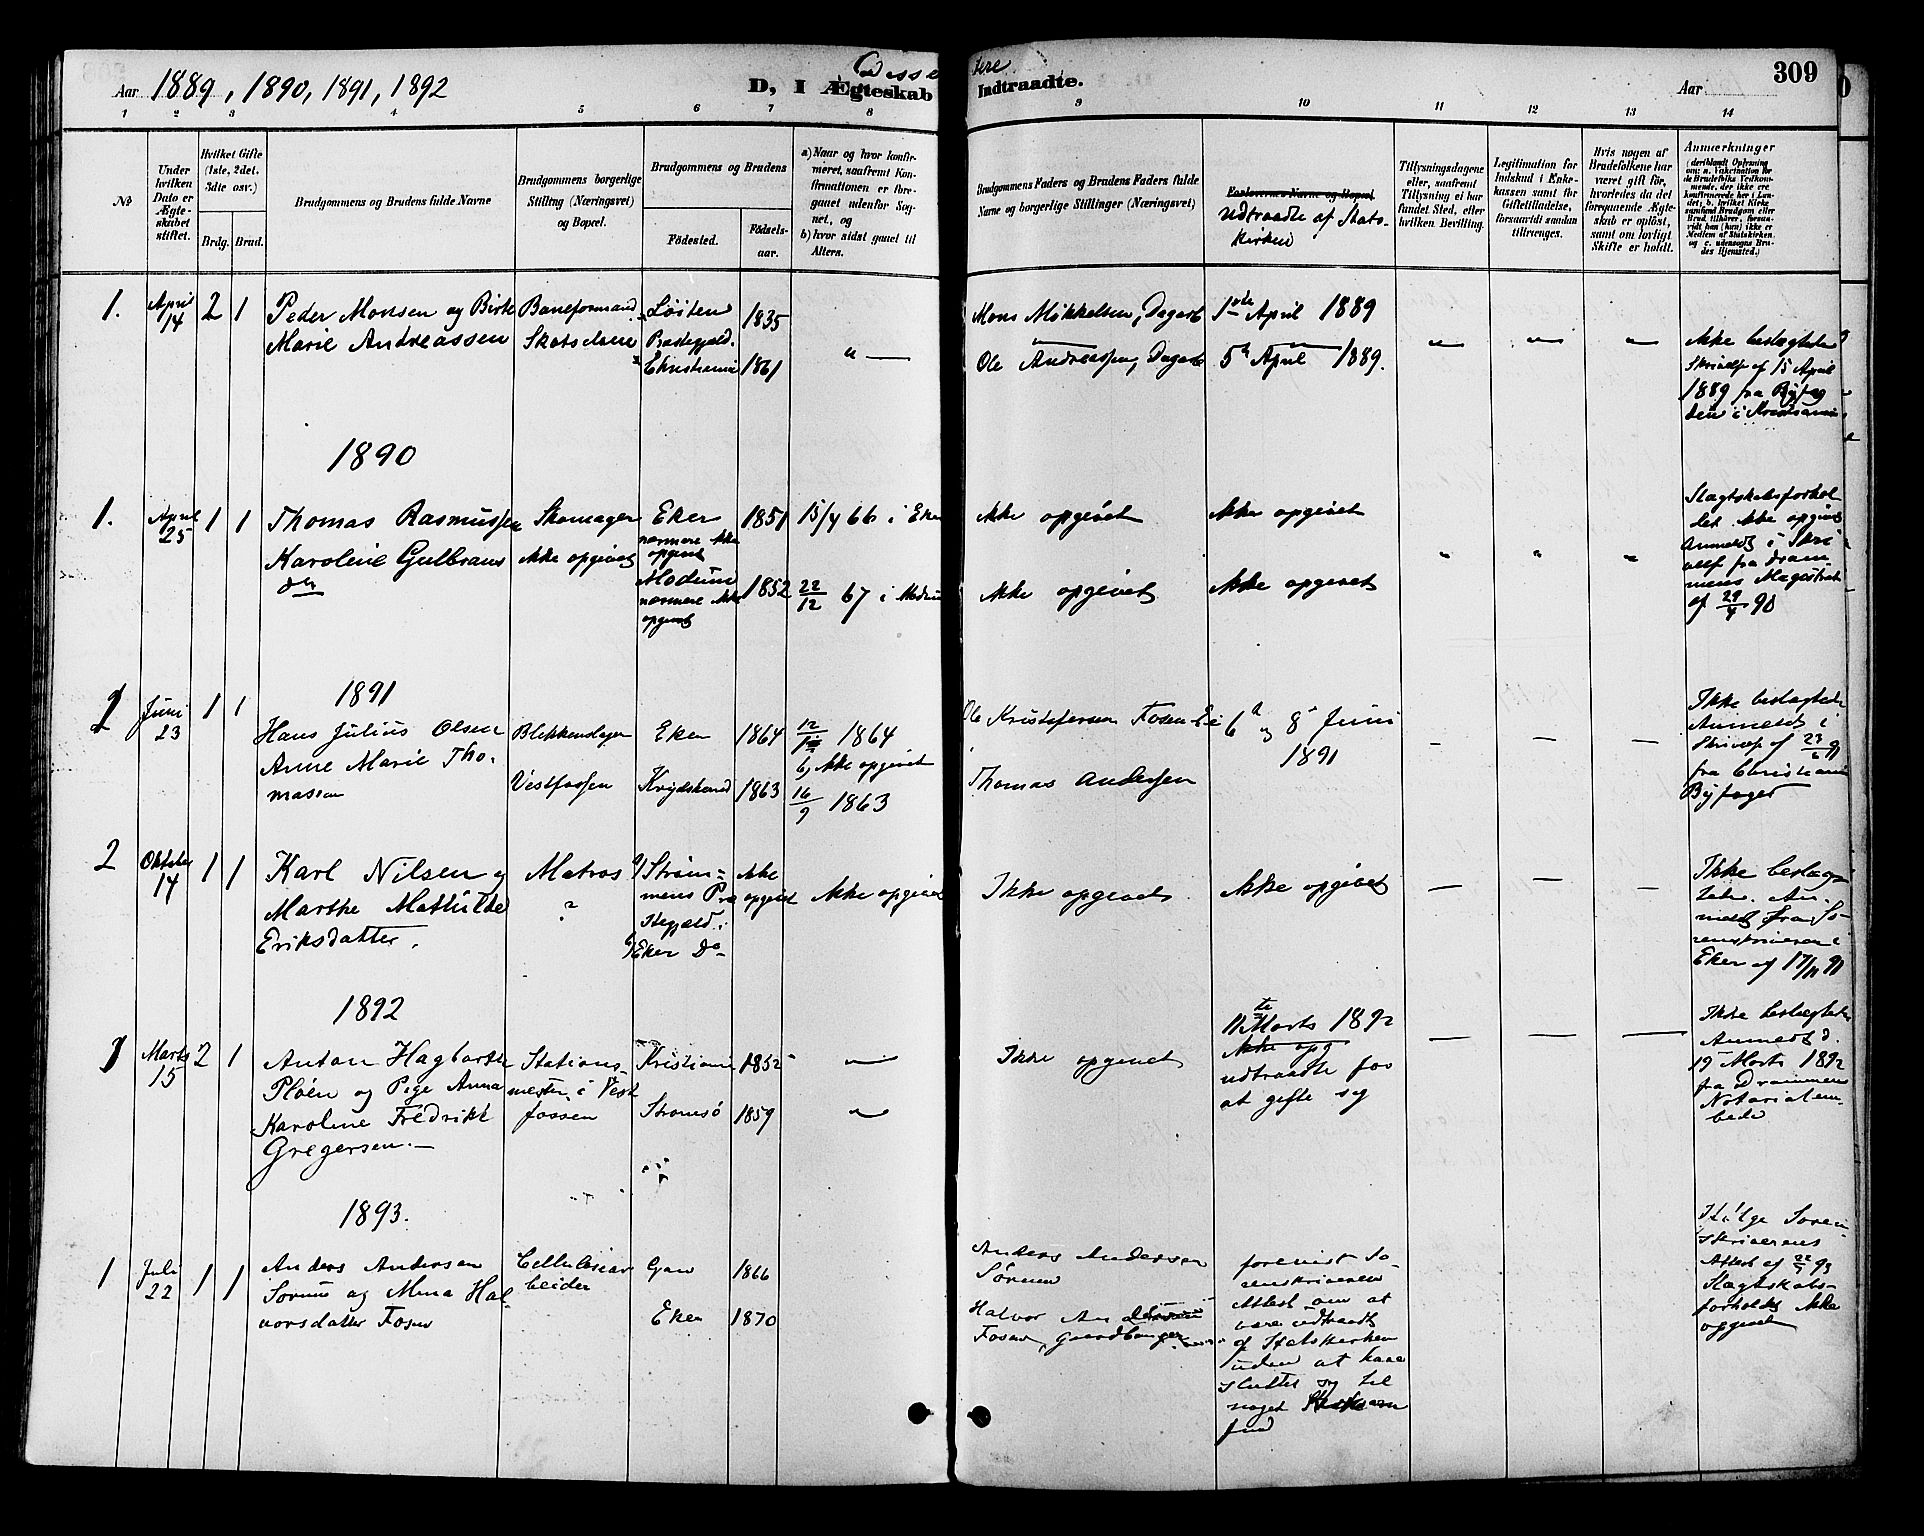 Aar 1889, 1890, 1891, 1892
D, I Ægteskab
Indtraadte.
Aar
309
1 2 3 4 5 6 7 8 9 10 11 12 13 14
No
Under hvilken Dato er Ægteskabet stiftet.
Hvilket Gifte (1ste, 2det, 3die osv.)
Brdg. Brud.
Brudgommens og Brudens fulde Navne
Brudgommens borgerlige Stilling (Næringsvei) og Bopæl.
Brudgommens og Brudens
Födested.
Födsels-aar.
a) Naar og hvor konfirmeret, saafremt Konfirmationen er foregaaet udenfor Sognet, og
b) hvor sidst gaaet til Alters.
Brudgommens Faders og Brudens Faders fulde Navne og borgerlige Stillinger (Næringsvei)
Forlovernes Navne og Bopæl
udtraadte af Stats-
kirken
Tillysningsdagene eller, saafremt Tillysning ei har fundet Sted, efter hvilken Bevilling.
Legitimation for Indskud i Enkekassen samt for Giftetilladelse, forsaavidt saadan tiltrænges.
Hvis nogen af Brudefolkene har været gift för, hvorledes da det foregaaende Ægteskab er oplöst, samt om lovligt Skifte er holdt.
Anmærkninger
1. April 14 2 1
Peder Monsen og Birte
Marie Andreassen
Baneformand
Løiten
Præstegjæld.
1835
Christiania 1861
Mons Mikkelsen, Dagarb
Ole Andreassen, Dagarb
1ste April 1889
5te April 1889.
Ikke beslegtede
Skrivelse af 15 April
1889 fra Byfog
den i Kristiania
1890
1. April 25 1 1
Thomas Rasmussen
Karoline Gulbrans
dtr
Skomager
Ikke opgivet
Eker
nærmere ikke
opgivet
1851
Modum
nærmere ikke
opgivet
1852
15/4 66 i Eker
22/12 67 i Modum
Ikke opgivet
Ikke opgivet
Ikke opgivet
Ikke opgivet
Slægtskabsforhol
det ikke opgivet
Anmeldt i Skri
velse fra Dram
mens Magistrat
af 29/4 90
1891
1 Juni 23 1 1
Hans Julius Olsen
Anne Marie Tho-
massen
Blikkenslager
Vestfossen
Eker 1864
1863
12/12 1864
b, Ikke opgivet
16/9 1863
Ole Kristofersen Fosen
Thomas Andersen
6te og 8de Juni
1891
Ikke beslægtede
Anmeldt i
Skrivelse af 23/6 91
fra Christiania
Byfoged
2 Oktober 14 1 1
Karl Nilsen og
Marthe Mathilde
Eriksdatter.
Matros
Strøm-
mens Præ
stegjæld.
b) Eker Do
Ikke
opgivet
Ikke opgivet
Ikke opgivet
Ikke opgivet
Ikke beslægt
tede. An-
meldt fra So-
renskriveren i
Eker af 17/11 91
1892
1 Marts 15 2 1
Anton Hagbarth
Pløen og Pige Anna
Karoline Fredrikke
Gregersen.
Stations-
mester i Vest
fossen
Kristiania 1852
Strømsö 1859
Ikke opgivet
11te Marts 1892
Ikke opg
udtraadte for
at gifte sig
Ikke beslægtede
Anmeldt d.
19 Marts 1892
fra Drammens
Notarialem-
bede
1893.
1 Juli 22 1 1
Anders Andersen
Sørum og Mina Hal-
vorsdatter Fosen
Cellulosear
beider
1866
Eker 1870
Anders Andersen
Sørum
Halvor
Fosen, Gaardbruger
forevist So-
renskriverens
Attest om at
være udtraadt
af Statskirken
uden at have
sluttet sig til
noget
fund
Ifølge Soren-
skriverens
Attest af 22/7 93
Slægtskabs-
forholdet ikke
opgivet